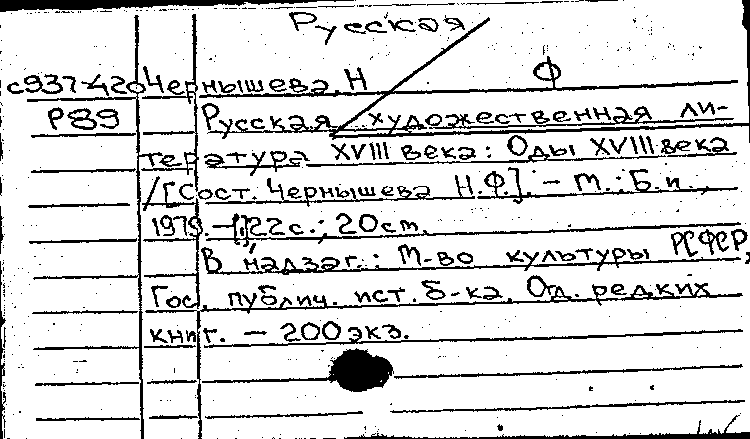 Русская
с937-420 Чернышева, Н Ф
Р89 Русская художественная ли-
тература XVIII века: Оды XVIII века
/[Сост. Чернышева Н.Ф.]. - М.: Б.и.,
1979. - 22 с.; 20 ст.
В надзаг.: М-во культуры РСФСР,
Гос. публич. ист. б-ка. Од. редких
книг. - 200 экз.